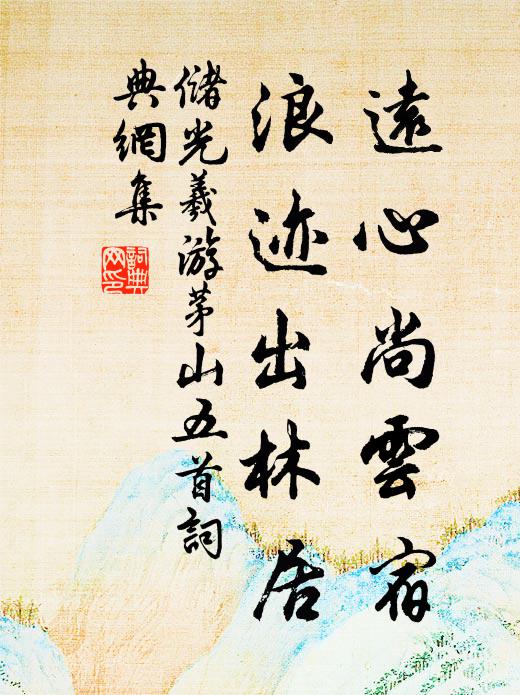 遠心尚雲宿
浪迹出林居
儲光羲游茅山五首詞
典網集
詞典
网印